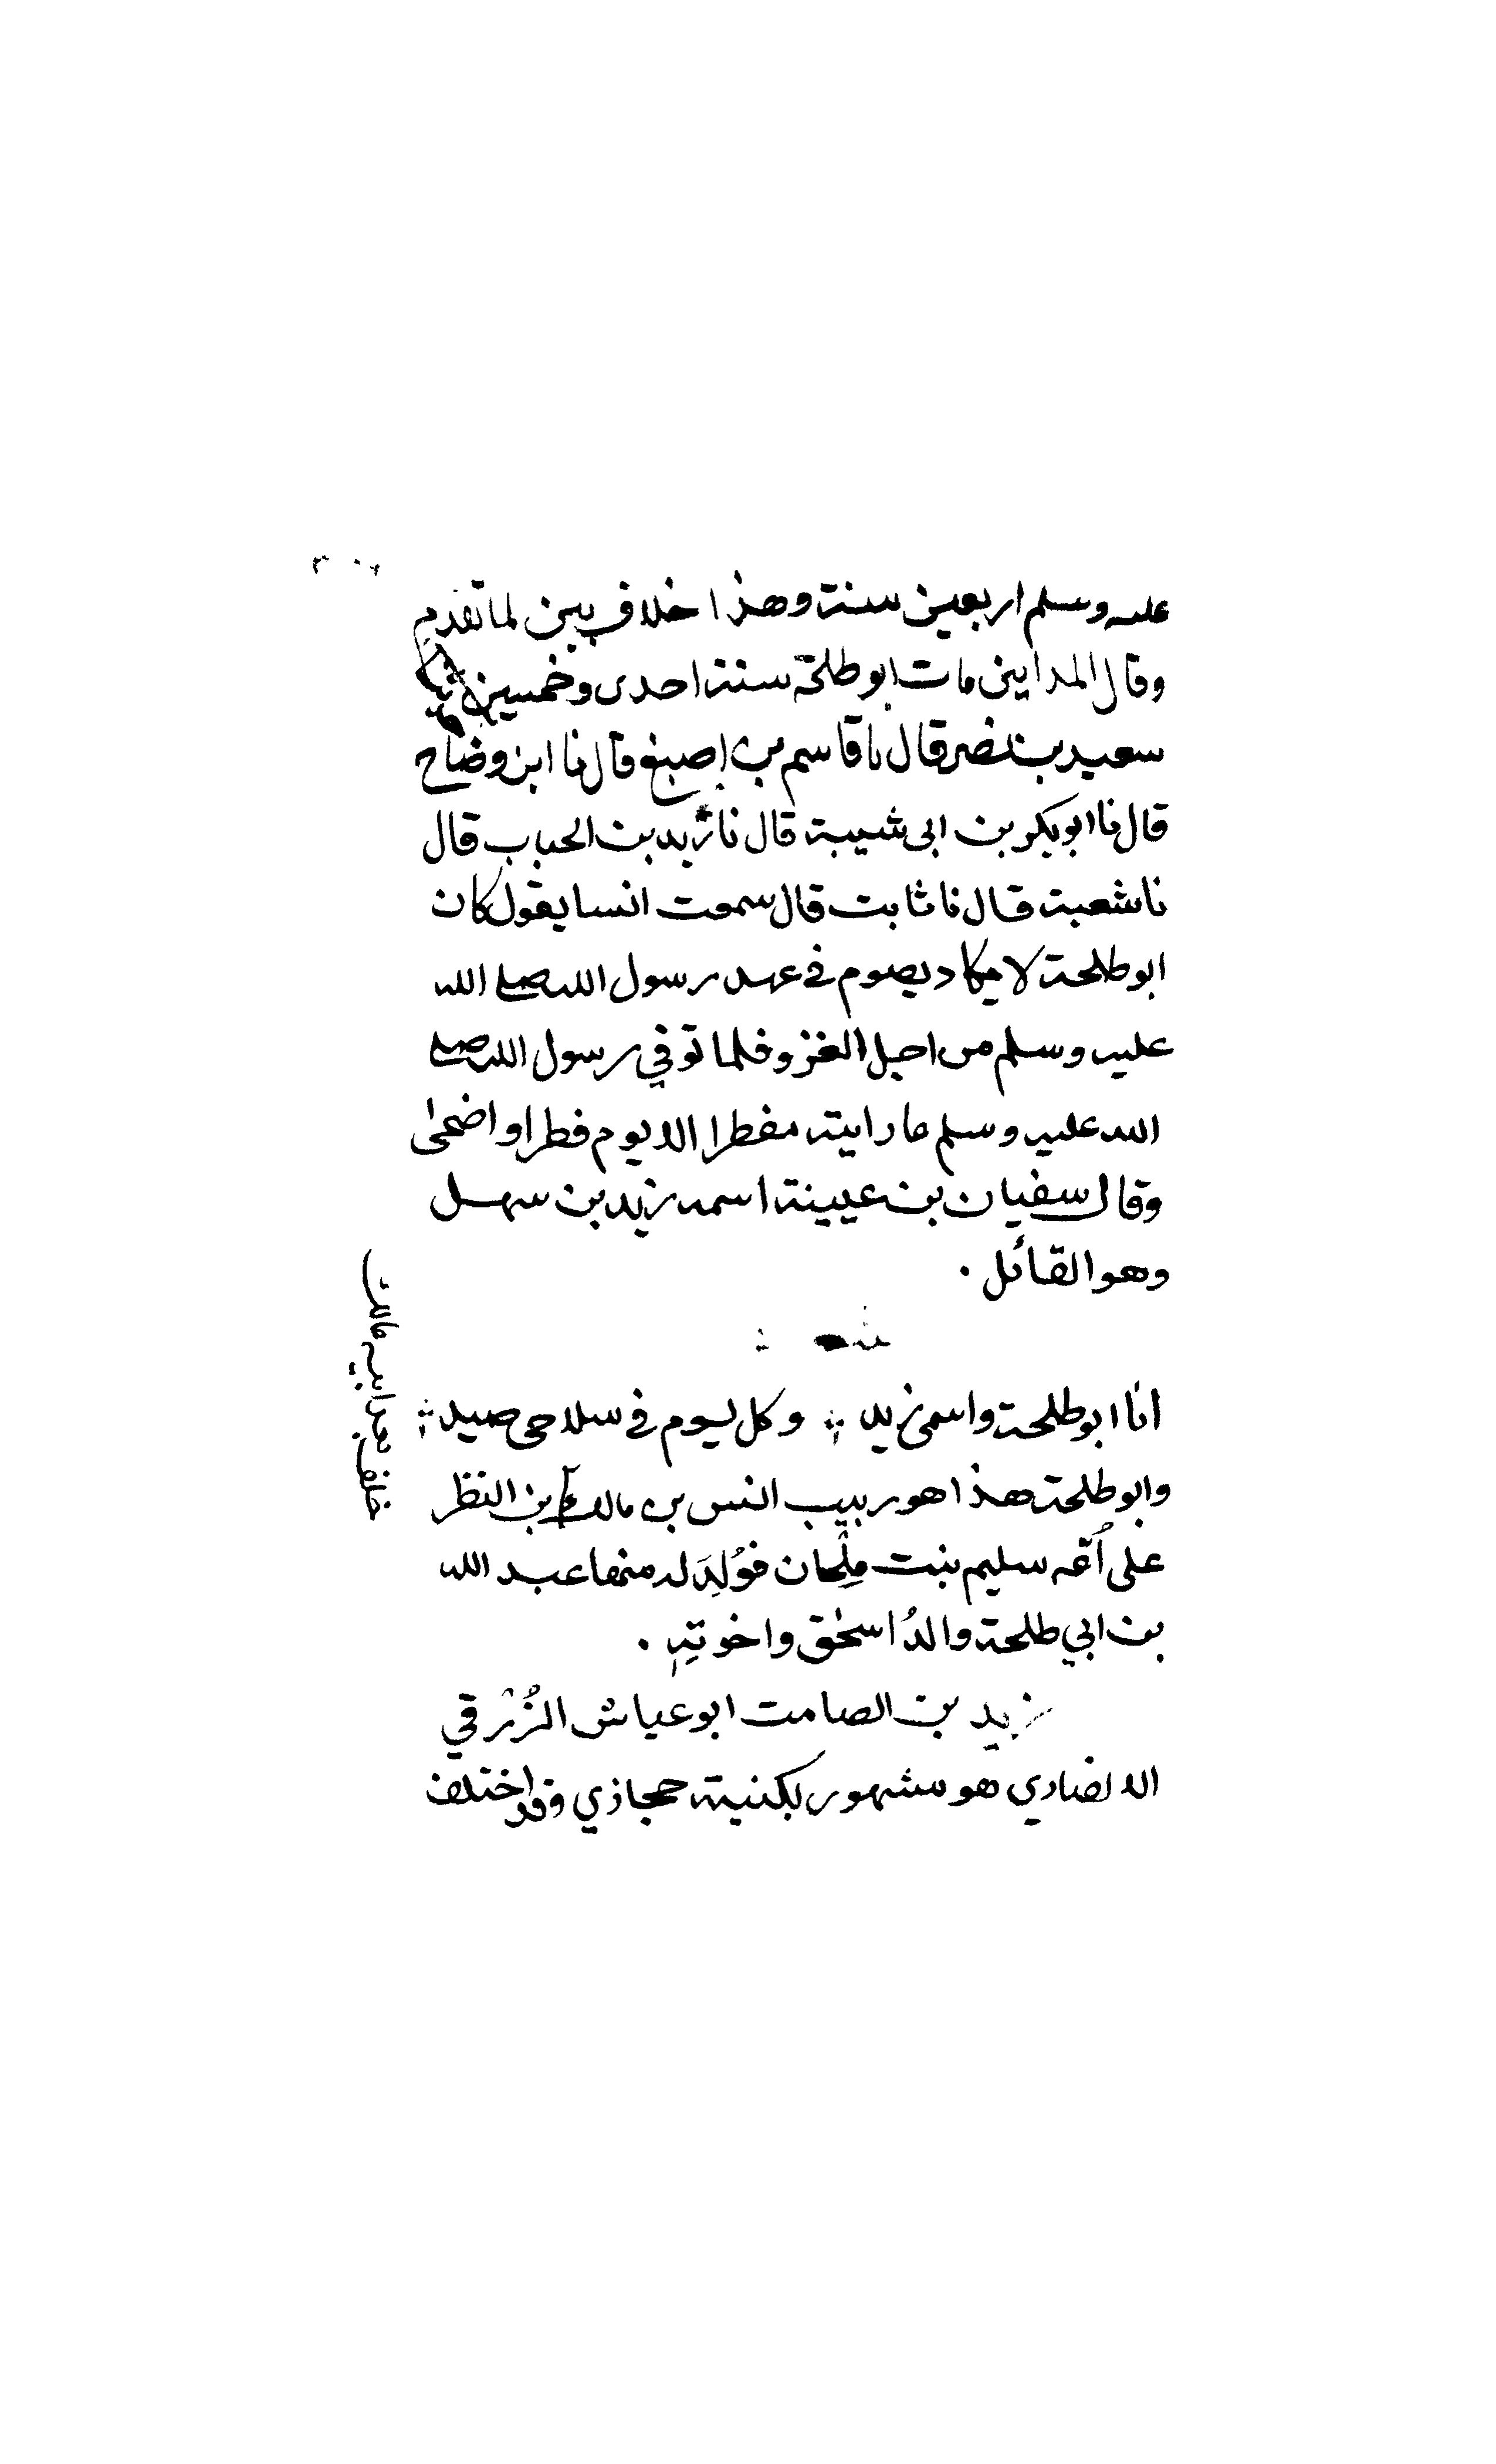 عليه وسلم اربعين سنة وهذا خلاف بين لما تقدم
وقال المدايني مات ابو طلحة سنة احدى وخمسين
سعيد بن نصر قال نا قاسم بن اصبغ قال نا ابن وضاح
قال نا ابو بكر بن ابى شيبة قال نا زيد بن الحباب قال
نا شعبة قال نا ثابت قال سمعت انسا يقول كان
ابو طلحة لا يكاد يصوم في عهد رسول الله صلى الله
عليه وسلم من اجل الغزو فلما توفي رسول الله صلى
الله عليه وسلم ما رايته مفطرا الا يوم فطر او اضحىٰ
وقال سفيان بن عيينة اسمه زيد بن سهل
وهو القائل .
انا ابو طلحة واسمى زيد ؞ وكل يوم في سلاحى صيد ؞
وابو طلحة هذا هو ربيب انس بن مالك بن النظر
على اُمّه سليم بنت مِلْحان فوُلِدَ له منها عبد الله
بن ابي طلحة والدُ اسحٰق واخوتهِ .
زيد بن الصامت ابو عياش الزُرَقي
الانصاري هو مشهور بكنيته حجازي وقد اختلف
خلف بعد ابيه مالك